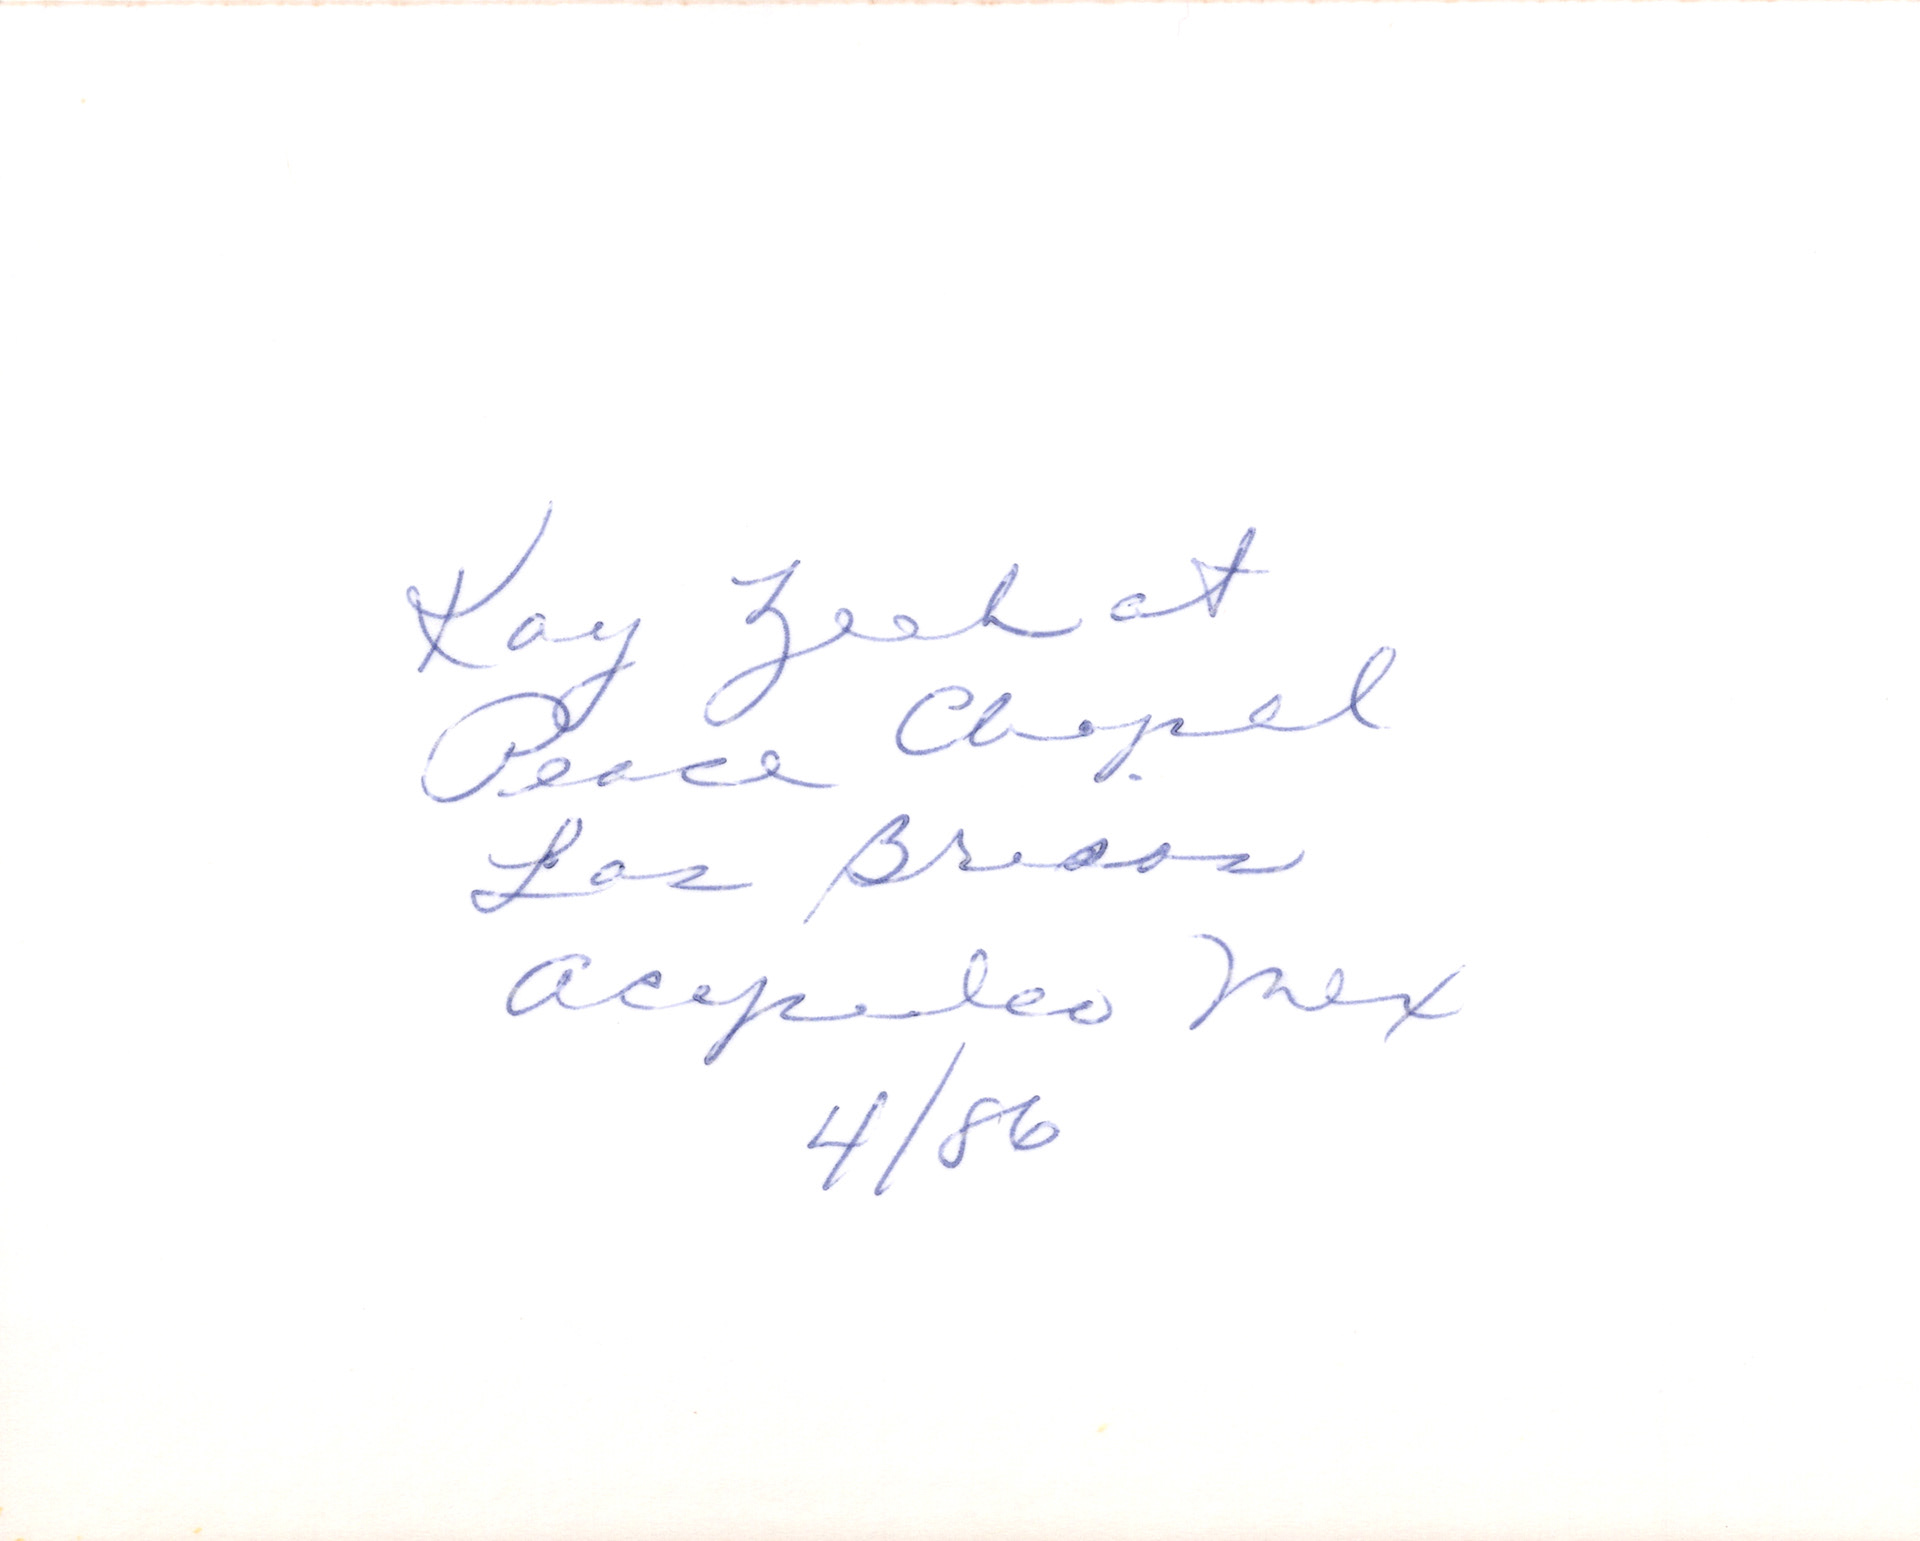 Kay Zeeh at
Peace Chapel
Las Brisas
Acapulco Mex
4/86